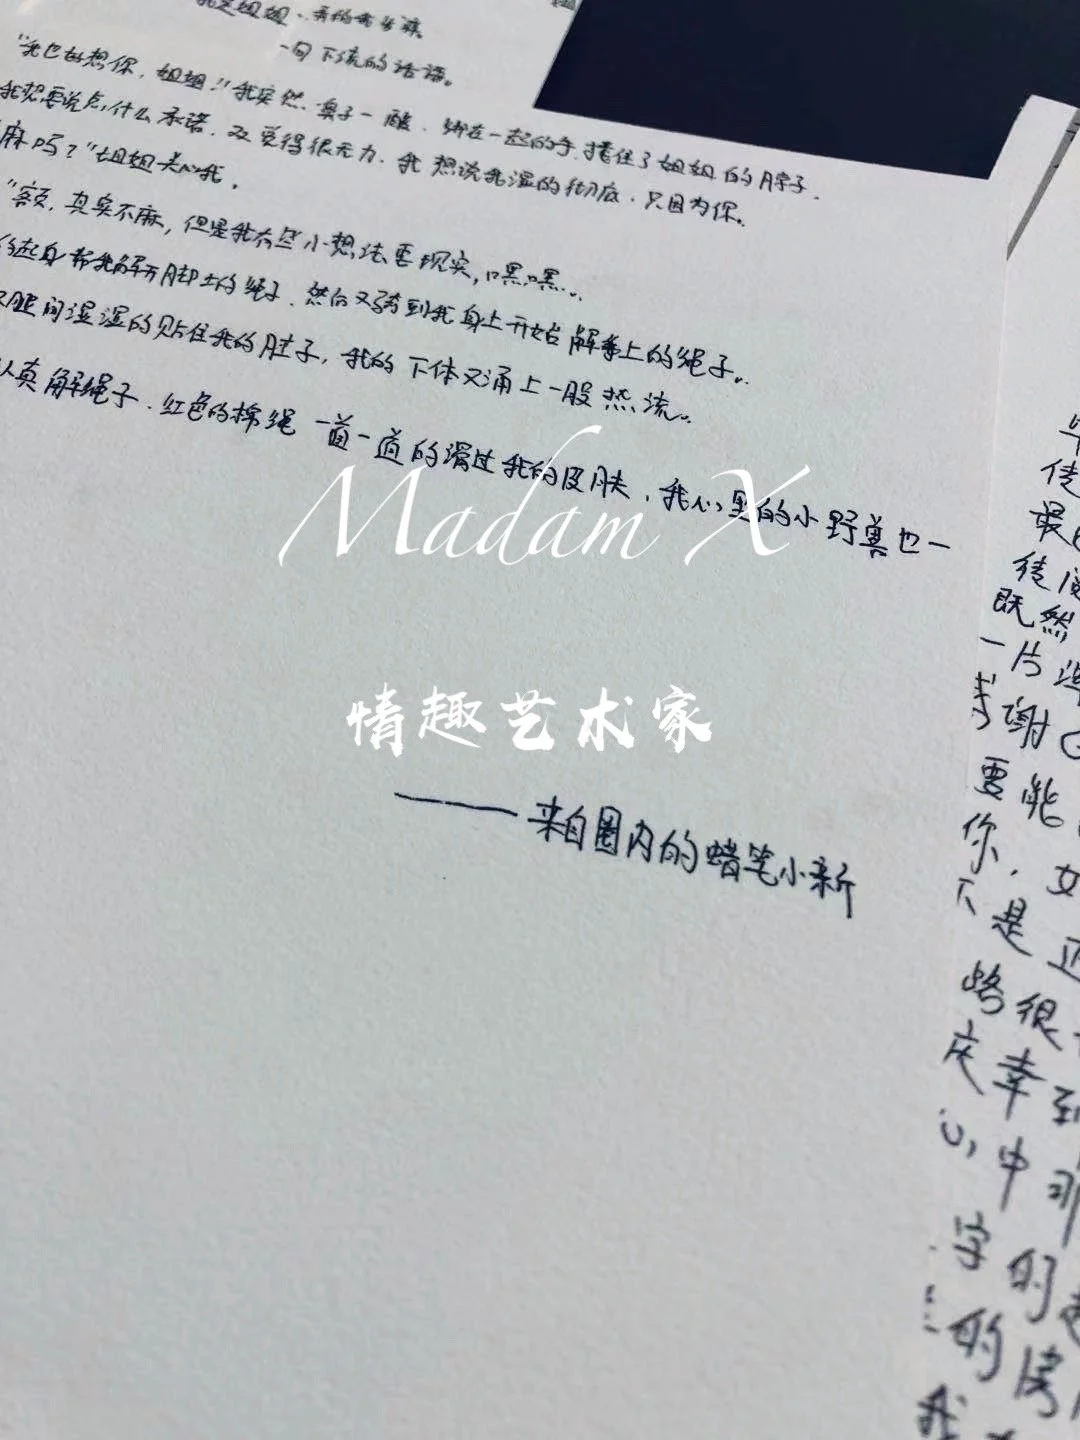 一句下流的话语。
"我也好想你，姐姐！"我突然鼻子一酸，绑在一起的手搂住了姐姐的脖子。
我想要说点什么承诺，又觉得很无力，我想说我湿的彻底，只因为你。
麻吗？"姐姐关心我。
"额，其实不麻，但是我有些小想法要现实，嘿嘿。
起身帮我解开脚上的绳子，然后又骑到我身上开始解手上的绳子。
腿间湿湿的贴住我的肚子，我的下体又涌上一股热流。
认真解绳子，红色的棉绳一道一道的滑过我的皮肤，我心里的小野兽也一
Madam X
情趣艺术家
——来自圈内的蜡笔小新
既然
一片
谢
要能
你，女
不是正
路很
庆幸到
心中那
字的
的房
我